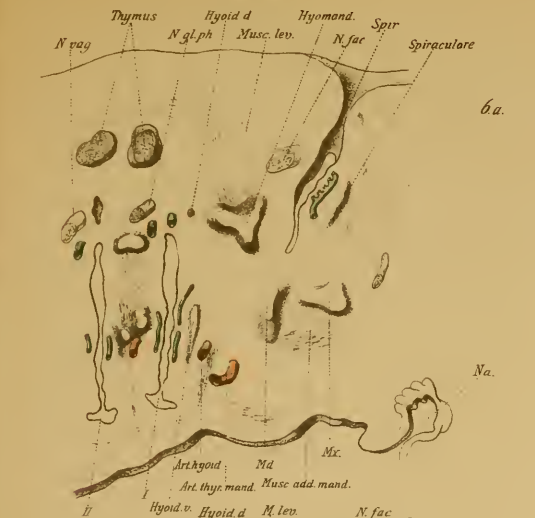 Thymus Hyoid d Hyomand. Spir
N vag N gl.ph Musc. lev. N. fac Spiraculare
6.a.
Na.
Art.hyoid Md Mx.
Art. thyr. mand. Musc add. mand.
II I Hyoid.v. Hyoid.d M. lev. N. fac